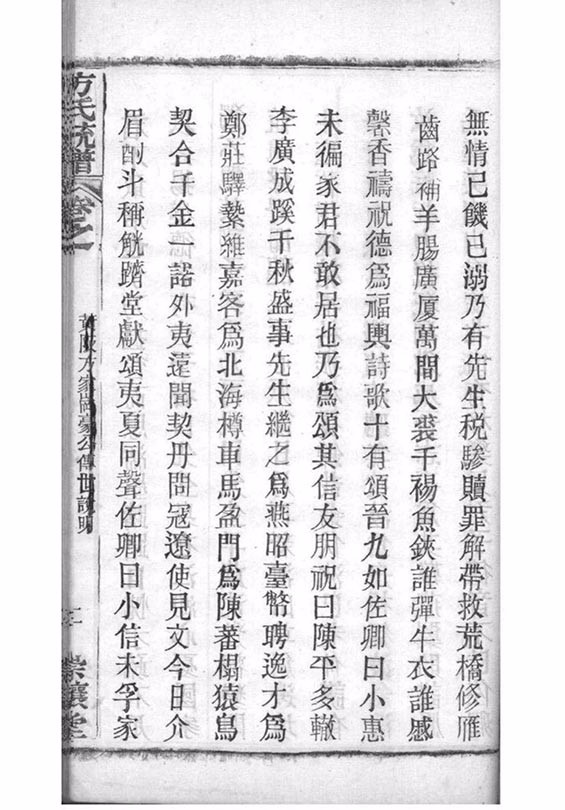 無情已饑己溺乃有先生稅驂贖罪解帶救荒橋修雁
齒路補羊腸廣厦萬間大裘千裼魚鋏誰彈牛衣誰感
馨香禱祝德爲福輿詩歌十有頌晉九如佐卿曰小惠
未徧家君不敢居也乃爲頌其信友朋祝曰陳平多轍
李廣成蹊千秋盛事先生繼之爲燕昭臺幣聘逸才爲
鄭莊驛縶維嘉客爲北海樽車馬盈門爲陳蕃榻猿鳥
契合千金一諾外夷遠聞契丹問冦遼使見文今日介
眉酌斗稱觥躋堂獻頌夷夏同聲佐卿曰小信未孚家
方氏統譜
卷之一
黃陂方家崗豪公傳世說明
三
崇讓堂